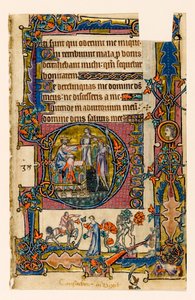 ti sunt qui oderunt me inique
Qui retribuunt mala p bonis
detrahebant michi: qm sequebar
bonitatem
Ne derelinquas me domine
meus ne discesseris a me
Intende in adiutorium meum
domine deus salutis mee